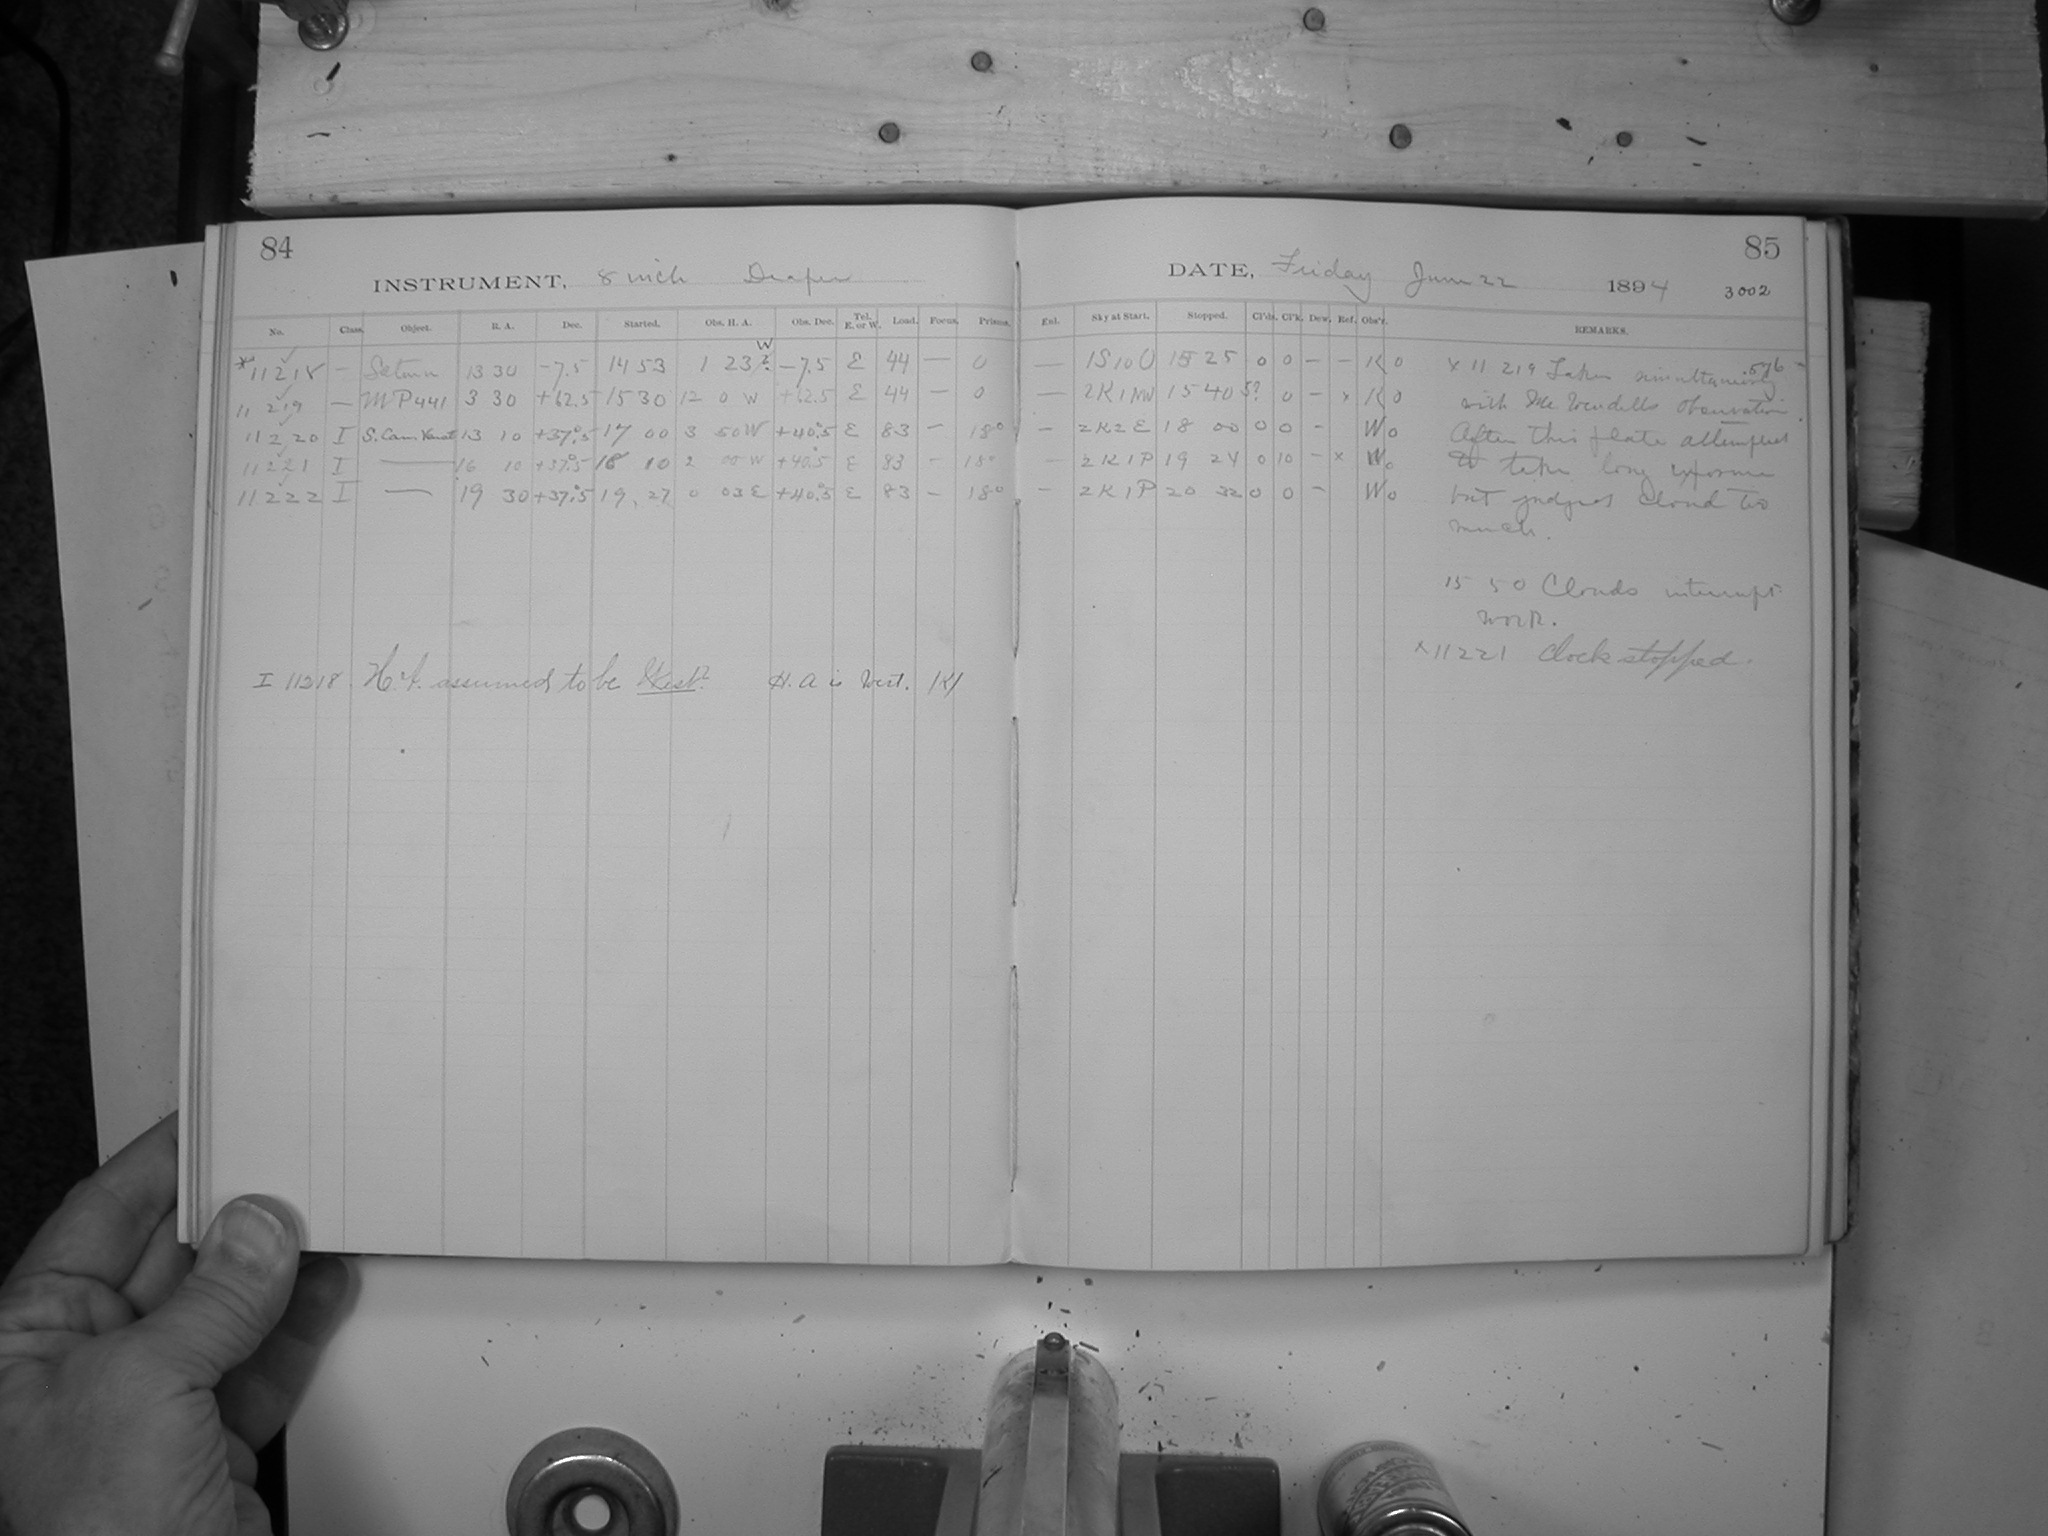 84
INSTRUMENT, 8 inch Draper
No. Class. Object. R. A. Dec. Started. Obs. H. A. Obs. Dec. Tel. E. or W. Load. Focus. Prisms.
*11218 — Saturn 13 30 -7.5 14 53 1 23 W? -7.5 E 44 — 0
11219 — MP441 3 30 +62.5 15 30 12 0 W +62.5 E 44 — 0
11220 I S. Cam. Venat 13 10 +37°.5 17 00 3 50 W +40°.5 E 83 — 18°
11221 I — 16 10 +37°.5 18 10 2 00 W +40°.5 E 83 — 18°
11222 I — 19 30 +37°.5 19 27 0 03 E +40°.5 E 83 — 18°
I 11218. H.A. assumed to be West? H. A is West.
85
DATE, Friday June 22 1894 3002
Enl. Sky at Start. Stopped. Cl'ds. Cl'k. Dew. Ref. Obs'r. REMARKS.
— 1S10U 15 25 0 0 — — K0
— 2K1NW 15 40 5? 0 — x K0
— 2K2E 18 00 0 0 — W0
— 2K1P 19 24 0 10 — x W0
— 2K1P 20 32 0 0 — W0
x 11 219 Taken simultaneously
with Mr Wendell's observation.
After this plate attempted
to take long exposure
but judged cloud too
much.
15 50 Clouds interrupt
work.
x11221 Clock stopped.